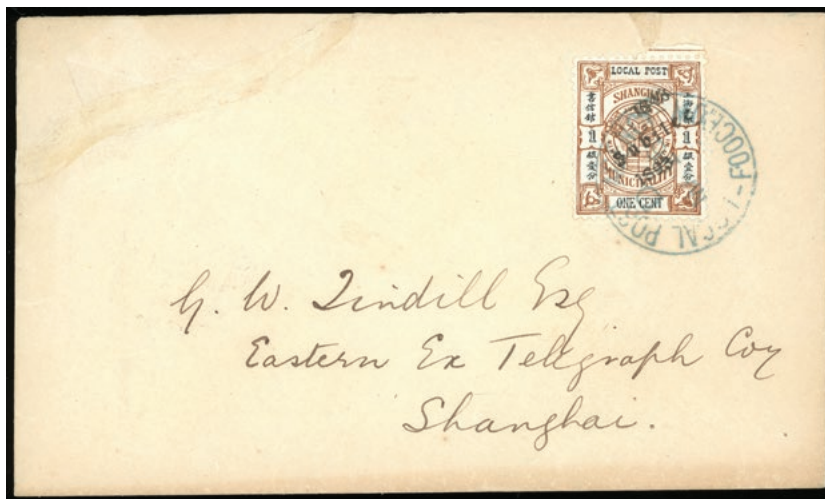 LOCAL POST
SHANGHAI
書信館
上海工部
1
1
銀壹分
銀壹分
MUNICIPALITY
ONE CENT
LOCAL POST
FOOCHOW
G. W. Tindill Esq
Eastern Ex Telegraph Coy
Shanghai.